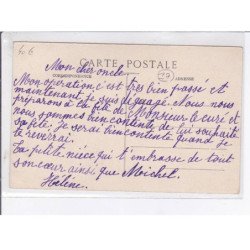 4.6
CARTE POSTALE
CORRESPONDANCE ADRESSE
Mon cher oncle
Mon opération c'est très bien passée et
maintenant je suis dégagé. Nous nous
préparons à la fête de Monsieur le curé et
nous sommes bien contente de lui souhaité
sa fête. Je serai bien contente quand je
te reverrai.
Ta petite nièce qui t'embrasse de tout
son cœur ainsi que Michel.
Hélène.